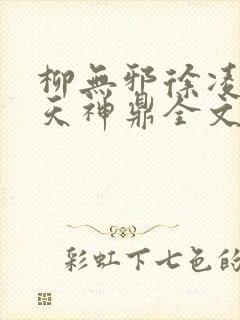 柳無邪徐凌
天神鼎全文
彩虹下七色的